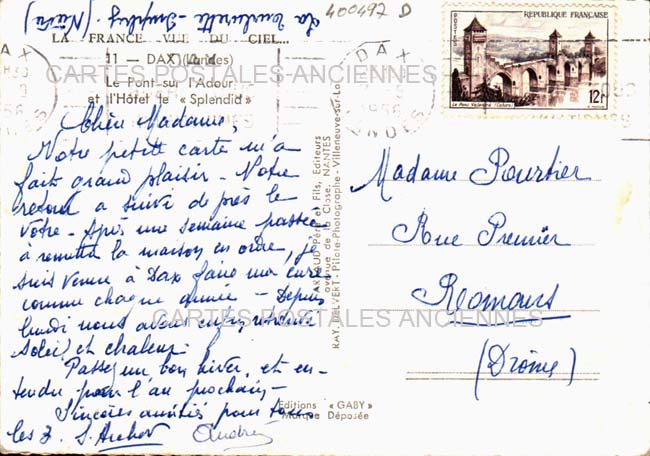 400497 D
La Tourterelle - (Nièvre)
LA FRANCE VUE DU CIEL...
11 — DAX (Landes)
Le Pont sur l'Adour
et l'Hôtel le « Splendid »
CARTES POSTALES ANCIENNES
DAX
RÉPUBLIQUE FRANÇAISE
POSTES
Le Pont Valentré (Cahors)
12F
Chère Madame,
Votre petite carte m'a
fait grand plaisir - Notre
retour a suivi de près le
vôtre - Après une semaine passée
à remettre la maison en ordre, je
suis venue à Dax faire ma cure
comme chaque année - Depuis
lundi nous avons enfin
soleil et chaleur.
Passez un bon hiver, et en-
tendu pour l'an prochain -
Sincères amitiés pour tous
les 3. S.
André
Père et Fils, Editeurs
avenue de la Close, NANTES
RAY DELVERT - Pilote-Photographe - Villeneuve-sur-Lot
Editions « GABY »
Marque Déposée
Madame Pourtier
Rue Premier
Romans
(Drôme)
CARTES POSTALES ANCIENNES